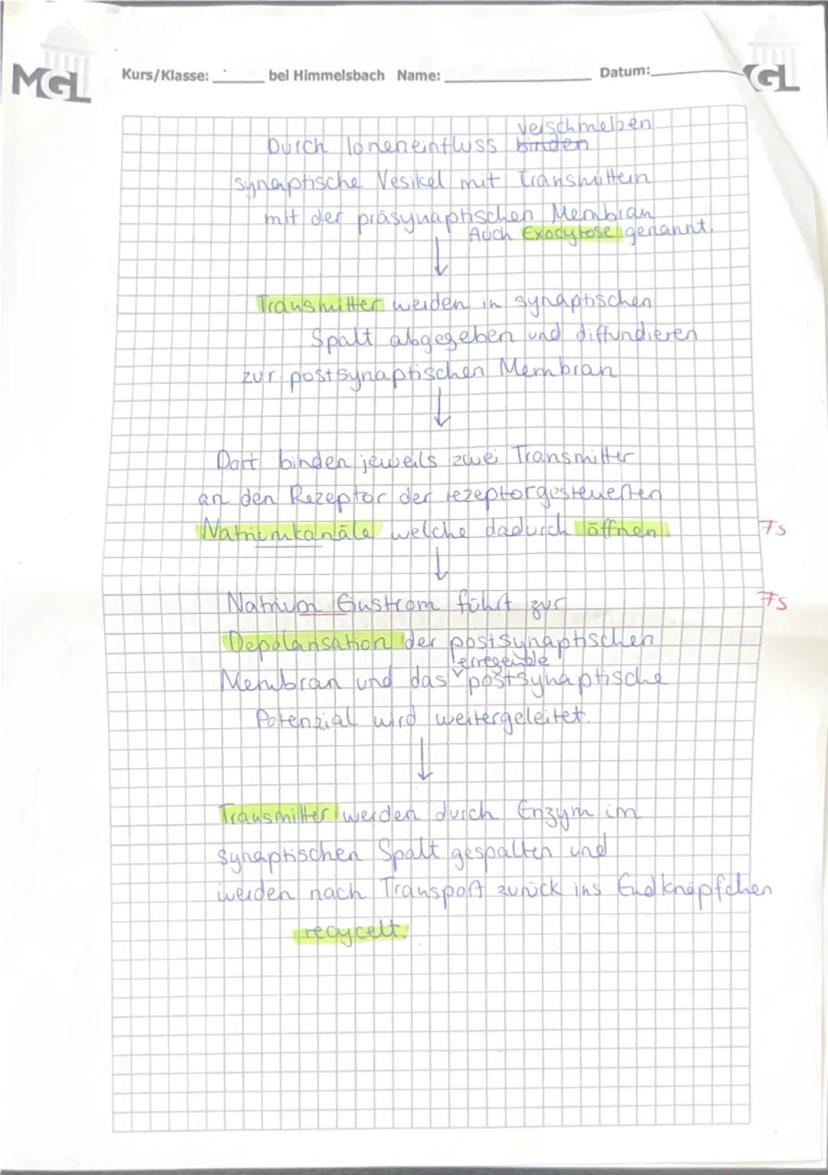 MGL
Kurs/Klasse: bei Himmelsbach Name: Datum: GL
verschmelzen
Durch Ioneneinfluss binden
synaptische Vesikel mit Transmittern
mit der präsynaptischen Membran
Auch Exocytose genannt.
Transmitter werden in synaptischen
Spalt abgegeben und diffundieren
zur postsynaptischen Membran
Dort binden jeweils zwei Transmitter
an den Rezeptor der rezeptorgesteuerten
Natriumkanäle welche dadurch öffnen 7s
Natrium Einstrom führt zur 7s
Depolarisation der postsynaptischen
erregende
Membran und das postsynaptische
Potenzial wird weitergeleitet.
Transmitter werden durch Enzym im
synaptischen Spalt gespalten und
werden nach Transport zurück ins Endknöpfchen
recycelt.